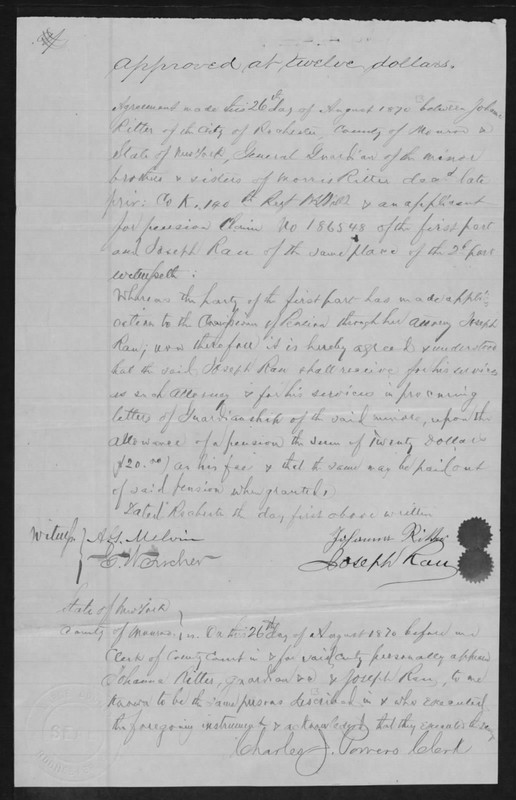 approved at twelve dollars.
Agreement made this 26th day of August 1870 between Johanna
Ritter of the City of Rochester, County of Monroe &
State of New York, General Guardian of the minor
brothers & sisters of Morris Ritter decd late
priv: Co K. 140th Regt & an applicant
for pension Claim No 186548 of the first part
and Joseph Rau of the same place of the 2d part
witnesseth:
Whereas the party of the first part has made appli-
cation to the of Pension through her attorney Joseph
Rau; now therefore it is hereby agreed & understood
that the said Joseph Rau shall receive for his services
as such attorney & for his services in procuring
letters of Guardianship of the said minors, upon the
allowance of a pension the sum of Twenty Dollars
($20.00) as his fee & that the same may be paid out
of said pension when granted.
Dated Rochester the day first above written
Witness } A. S. Melvin Johanna Ritter
Joseph Rau
State of New York
County of Monroe } ss. On this 26th day of August 1870 before me
Clerk of County Court in & for said County personally appeared
Johanna Ritter, guardian & Joseph Rau, to me
known to be the same persons described in & who executed
the foregoing instrument & acknowledged that they executed the same
Charles J. Powers Clerk